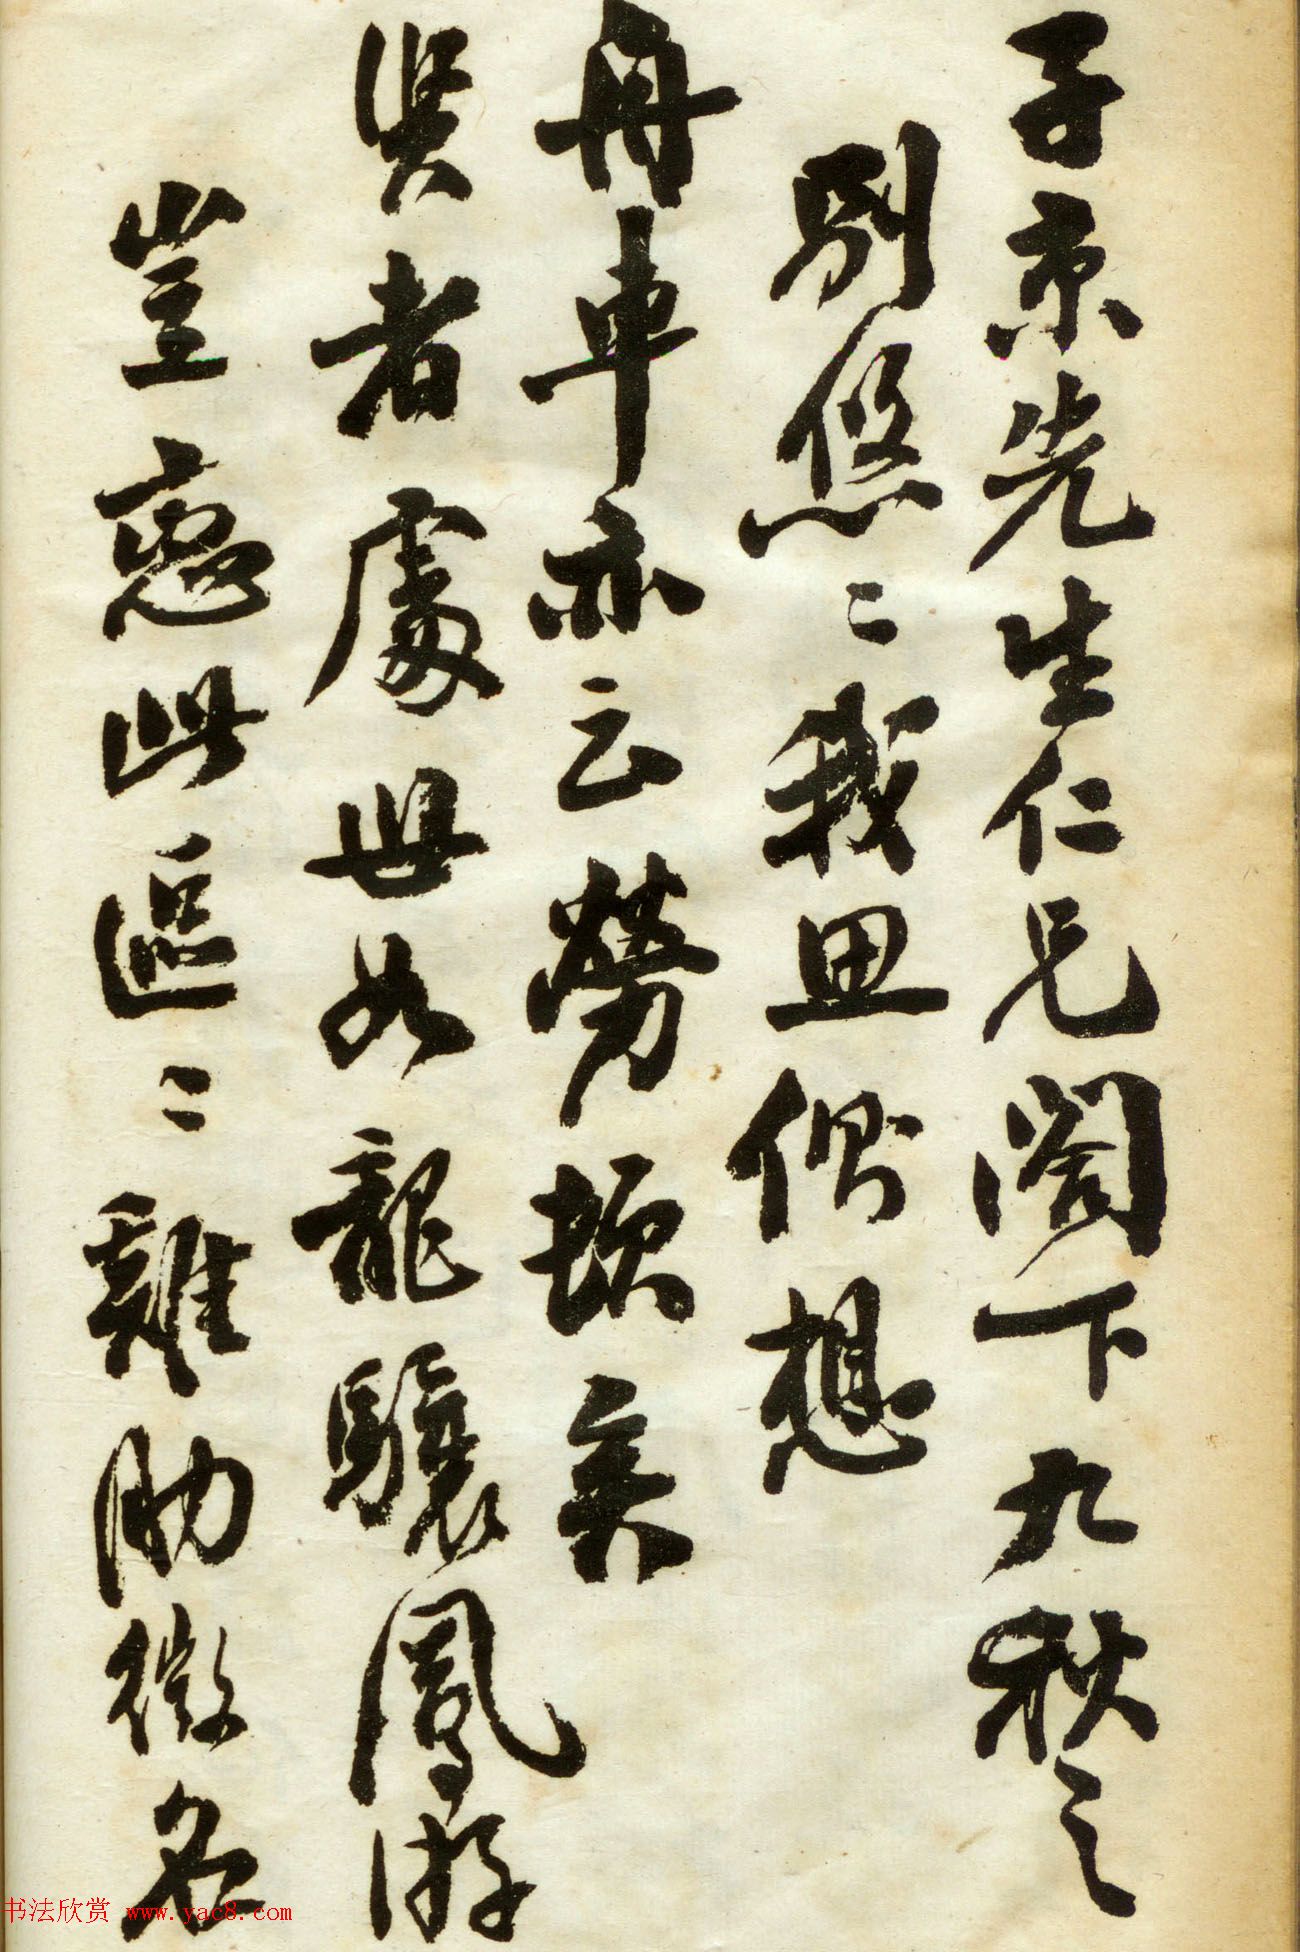 子京先生仁兄閣下九秋之
別悠〻我思側想
舟車亦云勞頓矣
賢者處世如龍驤鳳游
豈戀此區〻雞肋微名
书法欣赏 www.yac8.com